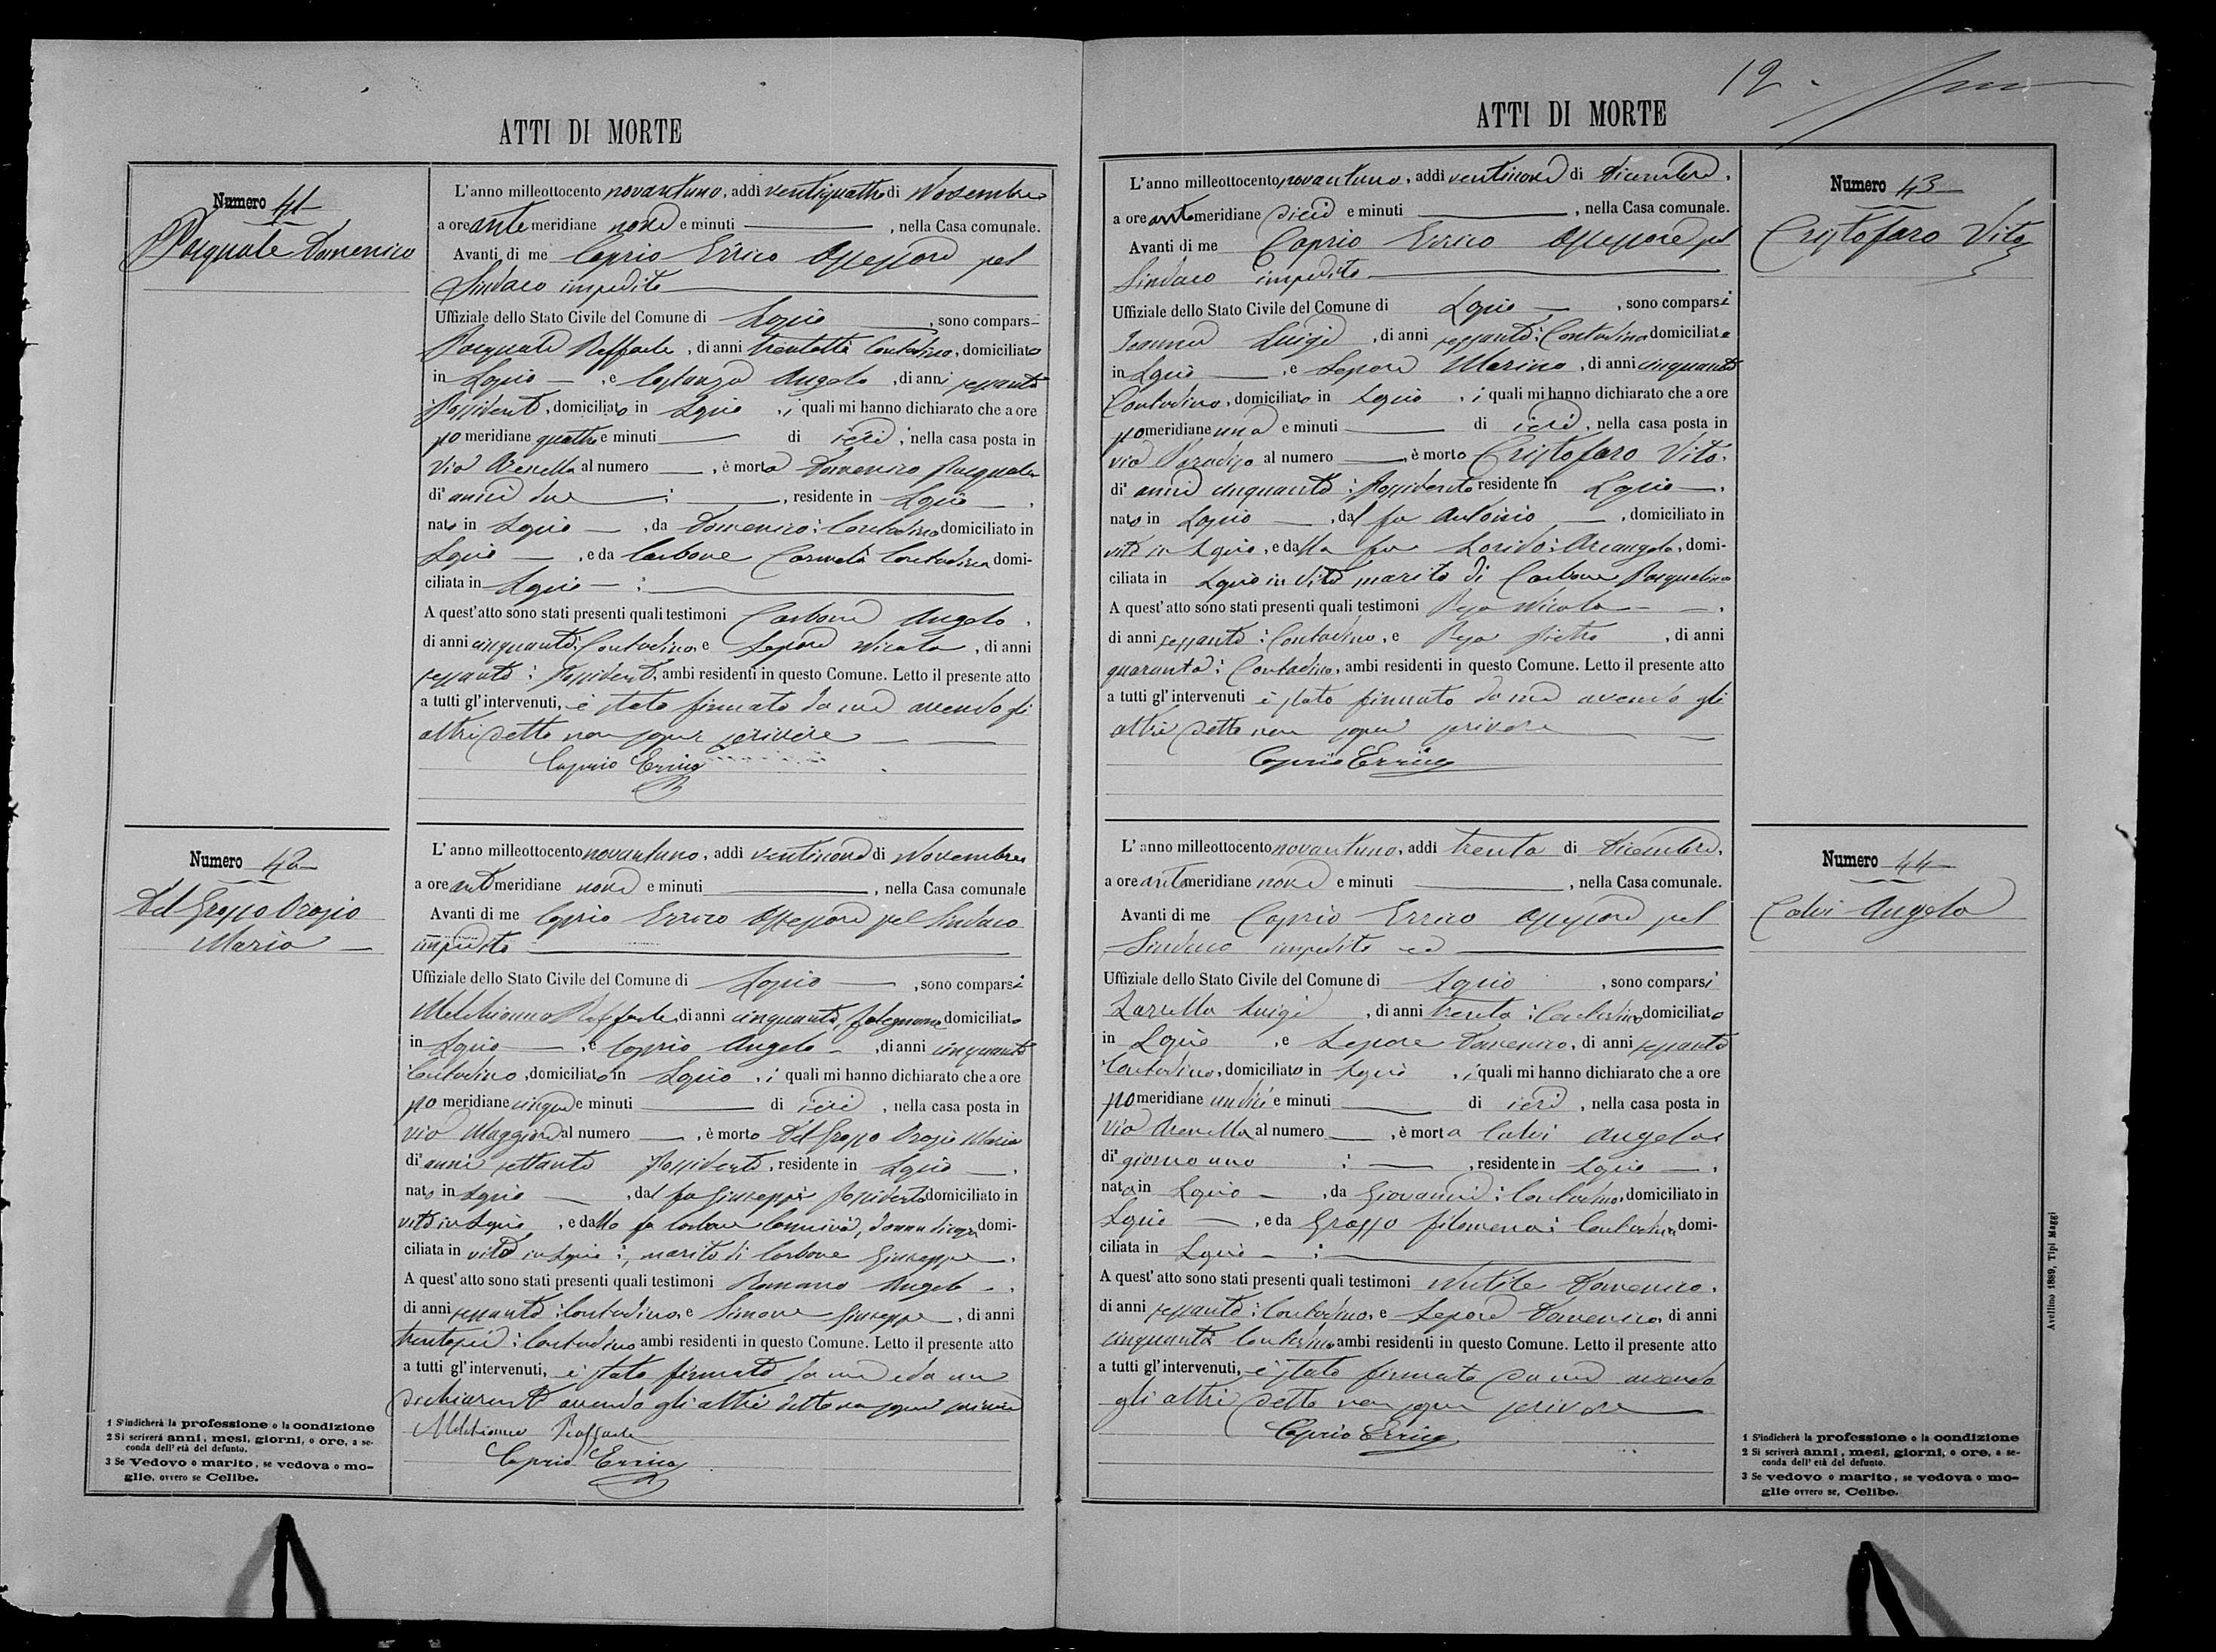 ATTI DI MORTE
Numero 41
Pasquale Domenico
L'anno milleottocento novantuno, addì ventiquattro di Novembre
a ore ante meridiane nove e minuti , nella Casa comunale.
Avanti di me Caprio Errico Assessore pel
Sindaco impedito
Uffiziale dello Stato Civile del Comune di Lapio , sono compars
Pasquale Raffaele, di anni trentotto Contadino, domiciliato
in Lapio , e Costanza Angelo, di anni sessanta
Possidente, domiciliato in Lapio , i quali mi hanno dichiarato che a ore
po meridiane quattro e minuti di ieri, nella casa posta in
via Arenella al numero , è morto Domenico Pasquale
di anni due ; , residente in Lapio .
nato in Lapio , da Domenico: Contadino domiciliato in
Lapio , e da Carbone Carmela Contadina domi-
ciliata in Lapio :
A quest'atto sono stati presenti quali testimoni Carbone Angelo,
di anni cinquanta: Contadino, e Lepore Nicola, di anni
sessanta: Possidente, ambi residenti in questo Comune. Letto il presente atto
a tutti gl'intervenuti, è stato firmato da me avendo gli
altri detto non saper scrivere
Caprio Errico
Numero 42
Del Grosso Orazio
Maria
L'anno milleottocento novantuno, addì ventinove di Novembre
a ore ante meridiane nove e minuti , nella Casa comunale
Avanti di me Caprio Errico Assessore pel Sindaco
impedito
Uffiziale dello Stato Civile del Comune di Lapio , sono comparsi
Melchionno Raffaele, di anni cinquanta, falegname domiciliato
in Lapio , e Caprio Angelo , di anni cinquanta
Contadino, domiciliato in Lapio , i quali mi hanno dichiarato che a ore
po meridiane cinque e minuti di ieri , nella casa posta in
via Maggiore al numero , è morto Del Grosso Orazio Maria
di anni settanta Possidente, residente in Lapio .
nato in Lapio , dal fu Giuseppe Possidente domiciliato in
vita in Lapio , e dalla fu Carbone domi-
ciliata in vita in Lapio : marito di Carbone Giuseppa .
A quest'atto sono stati presenti quali testimoni Romano Angelo .
di anni sessanta: Contadino, e Simone Giuseppe , di anni
trentasei: Contadino ambi residenti in questo Comune. Letto il presente atto
a tutti gl'intervenuti, è stato firmato da me e da un
dichiarante avendo gli altri detto non saper scrivere
Melchionno Raffaele
Caprio Errico
1 S'indicherà la professione o la condizione
2 Si scriverà anni, mesi, giorni, o ore, a se-
conda dell'età del defunto.
3 Se Vedovo o marito, se vedova o mo-
glie, ovvero se Celibe.
12
ATTI DI MORTE
L'anno milleottocento novantuno, addì ventinove di Dicembre,
a ore ante meridiane dieci e minuti , nella Casa comunale.
Avanti di me Caprio Errico Assessore pel
Sindaco impedito
Uffiziale dello Stato Civile del Comune di Lapio , sono comparsi
Luigi , di anni sessanta: Contadino domiciliato
in Lapio , e Lepore Marino, di anni cinquanta
Contadino, domiciliato in Lapio , i quali mi hanno dichiarato che a ore
po meridiane una e minuti di ieri, nella casa posta in
via Paradiso al numero , è morto Cristofaro Vito,
di anni cinquanta: Possidente residente in Lapio .
nato in Lapio , dal fu Antonio , domiciliato in
vita in Lapio, e dalla fu Arcangela, domi-
ciliata in Lapio in vita marito di Carbone Pasqualina
A quest'atto sono stati presenti quali testimoni Pepa Nicola .
di anni sessanta: Contadino, e Pepa Pietro , di anni
quaranta: Contadino, ambi residenti in questo Comune. Letto il presente atto
a tutti gl'intervenuti è stato firmato da me avendo gli
altri detto non saper scrivere
Caprio Errico
Numero 43
Cristofaro Vito
L'anno milleottocento novantuno, addì trenta di Dicembre,
a ore ante meridiane nove e minuti , nella Casa comunale.
Avanti di me Caprio Errico Assessore pel
Sindaco impedito
Uffiziale dello Stato Civile del Comune di Lapio , sono comparsi
Zarrella Luigi , di anni trenta: Contadino domiciliato
in Lapio , e Lepore Domenico, di anni sessanta
Contadino, domiciliato in Lapio , i quali mi hanno dichiarato che a ore
po meridiane undici e minuti di ieri , nella casa posta in
via Arenella al numero , è morta Calvi Angela
di giorno uno : , residente in Lapio .
nata in Lapio , da Giovanni: Contadino, domiciliato in
Lapio , e da Grasso Filomena: Contadina domi-
ciliata in Lapio :
A quest'atto sono stati presenti quali testimoni Nutile Domenico,
di anni sessanta: Contadino, e Lepore Domenico, di anni
cinquanta Contadino ambi residenti in questo Comune. Letto il presente atto
a tutti gl'intervenuti, è stato firmato da me avendo
gli altri detto non saper scrivere
Caprio Errico
Numero 44
Calvi Angela
1 S'indicherà la professione o la condizione
2 Si scriverà anni, mesi, giorni, o ore, a se-
conda dell'età del defunto.
3 Se vedovo o marito, se vedova o mo-
glie ovvero se, Celibe.
Avellino 1889, Tipi Maggi